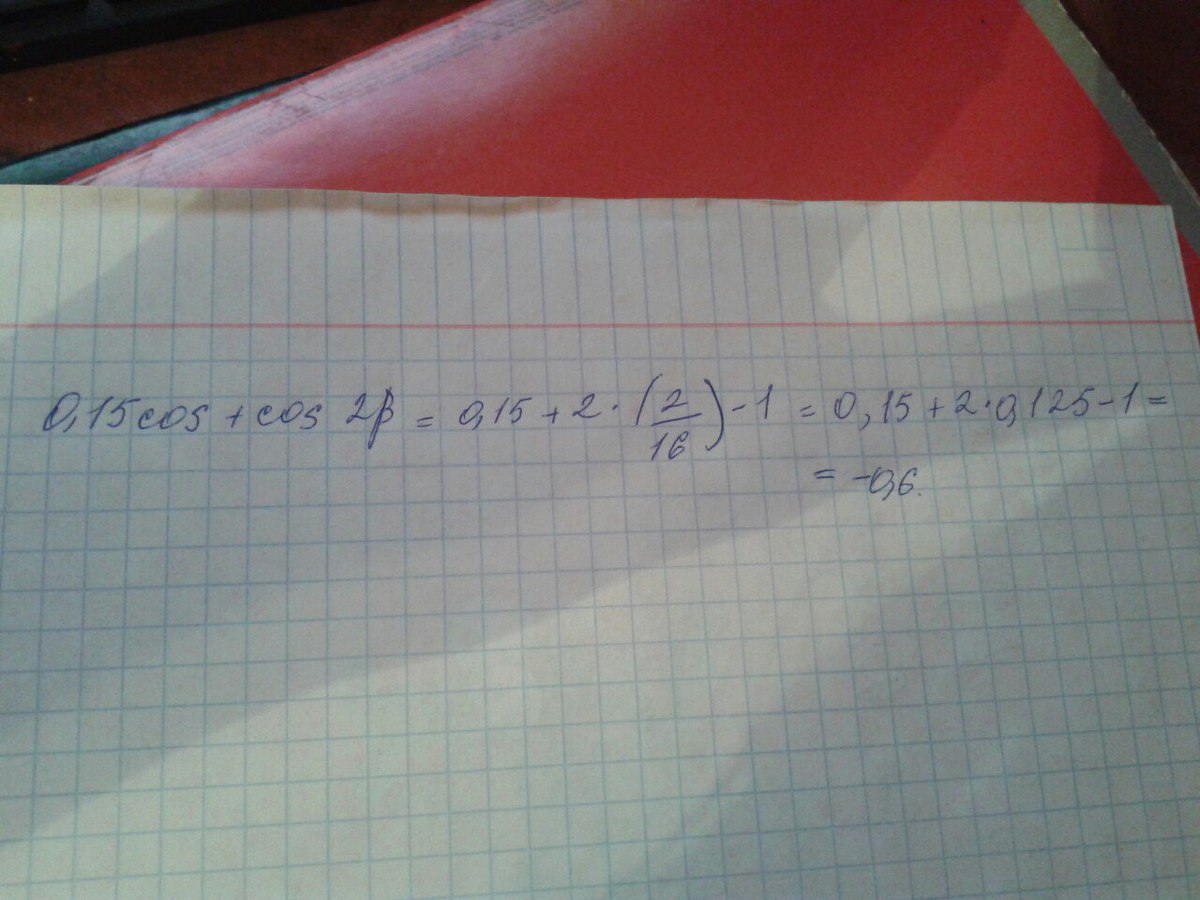 0,15cos + cos 2β = 0,15 + 2 · (2/16) - 1 = 0,15 + 2 · 0,125 - 1 =
= -0,6.